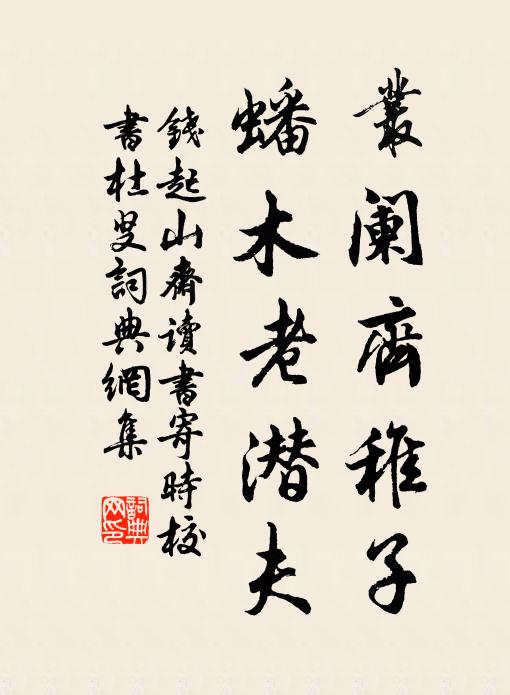 叢阑齊稚子
蟠木老潜夫
錢起山齋讀書寄時校
書杜叟詞典網集
詞典
网印